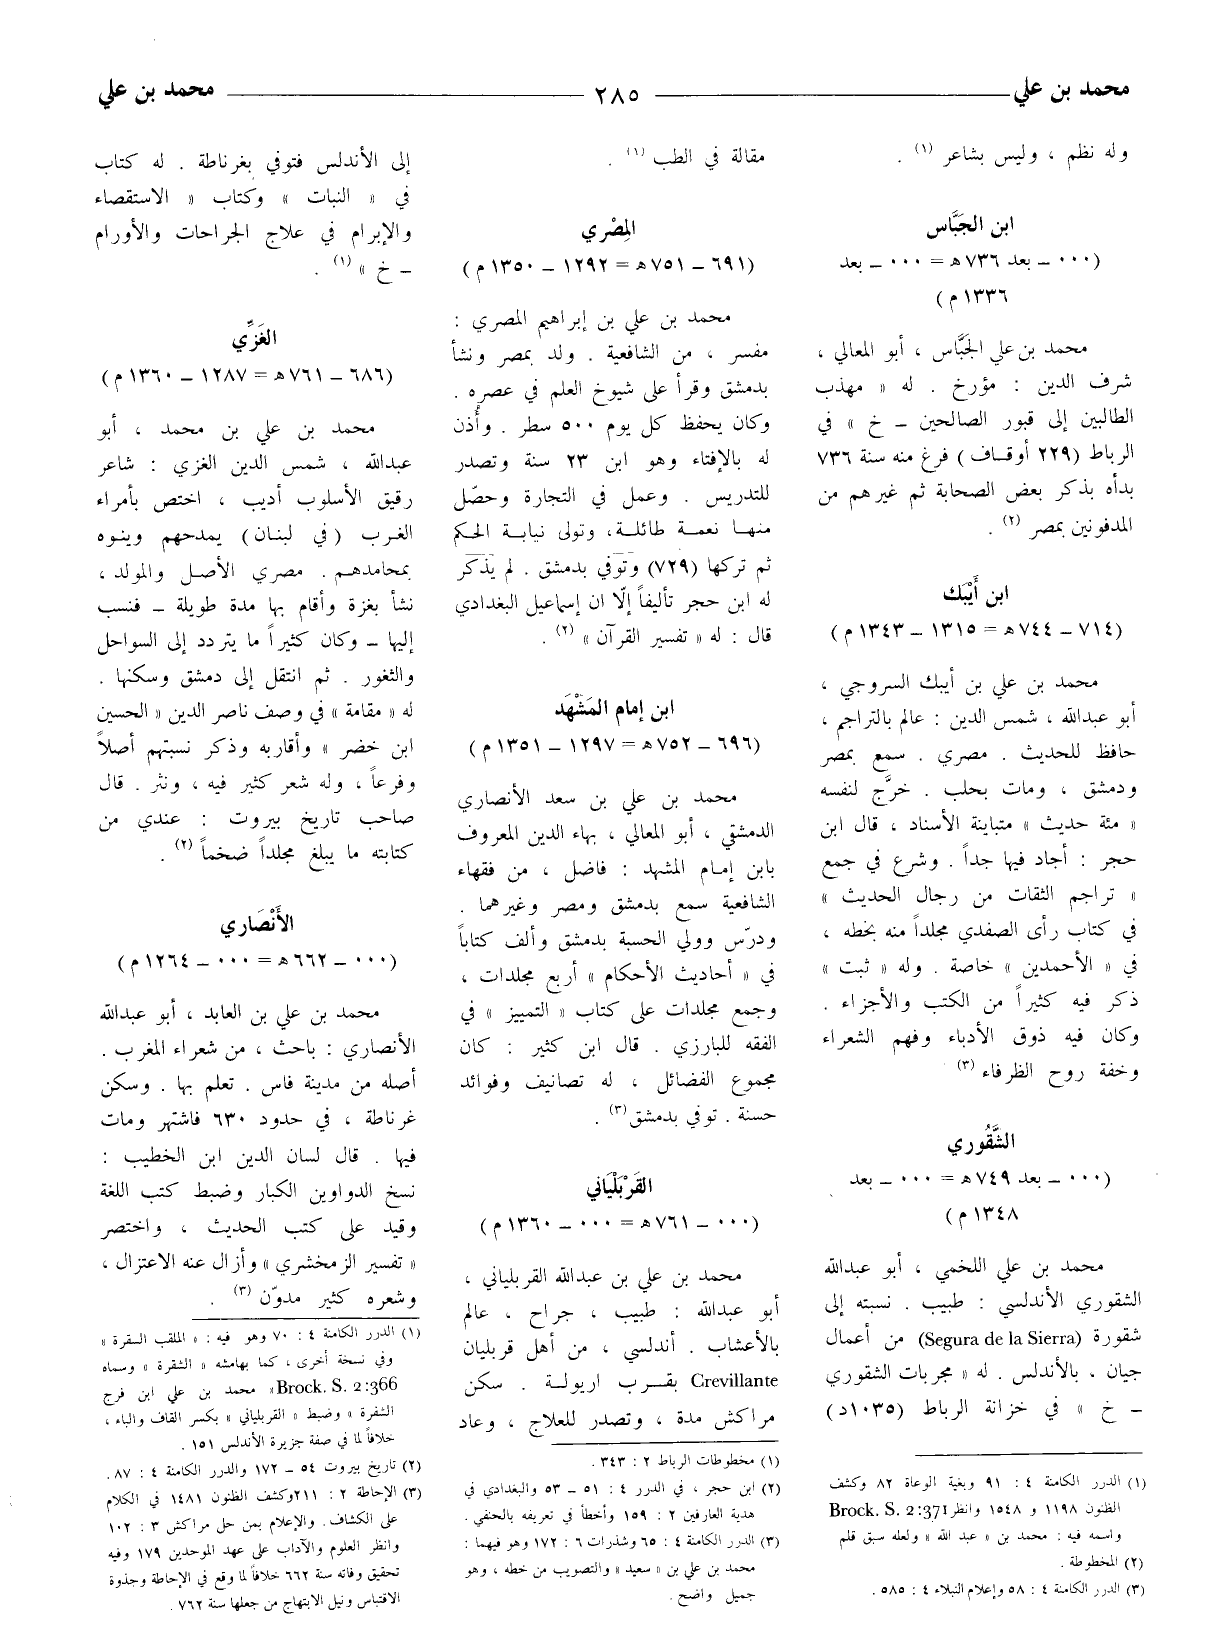 محمد بن علي ٢٨٥ محمد بن علي
وله نظم ، وليس بشاعر (١) .
ابن الجَبَّاس
(٠٠٠ ــ بعد ٧٣٦ هـ = ٠٠٠ ــ بعد
١٣٣٦ م)
محمد بن علي الجَبَّاس ، أبو المعالي ،
شرف الدين : مؤرخ . له « مهذب
الطالبين إلى قبور الصالحين ــ خ » في
الرباط (٢٢٩ أوقاف) فرغ منه سنة ٧٣٦
بدأه بذكر بعض الصحابة ثم غيرهم من
المدفونين بمصر (٢) .
ابن أَيْبَك
(٧١٤ ــ ٧٤٤ هـ = ١٣١٥ ــ ١٣٤٣ م)
محمد بن علي بن أيبك السروجي ،
أبو عبدالله ، شمس الدين : عالم بالتراجم ،
حافظ للحديث . مصري . سمع بمصر
ودمشق ، ومات بحلب . خرَّج لنفسه
« مئة حديث » متباينة الأسناد ، قال ابن
حجر : أجاد فيها جداً . وشرع في جمع
« تراجم الثقات من رجال الحديث »
في كتاب رأى الصفدي مجلداً منه بخطه ،
في « الأحمدين » خاصة . وله « ثبت »
ذكر فيه كثيراً من الكتب والأجزاء .
وكان فيه ذوق الأدباء وفهم الشعراء
وخفة روح الظرفاء (٣) .
الشَّقُوري
(٠٠٠ ــ بعد ٧٤٩ هـ = ٠٠٠ ــ بعد
١٣٤٨ م)
محمد بن علي اللخمي ، أبو عبدالله
الشقوري الأندلسي : طبيب . نسبته إلى
شقورة (Segura de la Sierra) من أعمال
جيان ، بالأندلس . له « مجربات الشقوري
ــ خ » في خزانة الرباط (١٠٣٥د)
(١) الدرر الكامنة ٤ : ٩١ وبغية الوعاة ٨٢ وكشف
الظنون ١١٩٨ و ١٥٤٨ وانظر Brock. S. 2:371
واسمه فيه : محمد بن « عبد الله » ولعله سبق قلم
(٢) المخطوطة .
(٣) الدرر الكامنة ٤ : ٥٨ وإعلام النبلاء ٤ : ٥٨٥ .
مقالة في الطب (١) .
المِصْري
(٦٩١ ــ ٧٥١ هـ = ١٢٩٢ ــ ١٣٥٠ م)
محمد بن علي بن إبراهيم المصري :
مفسر ، من الشافعية . ولد بمصر ونشأ
بدمشق وقرأ على شيوخ العلم في عصره .
وكان يحفظ كل يوم ٥٠٠ سطر . وأُذن
له بالإفتاء وهو ابن ٢٣ سنة وتصدر
للتدريس . وعمل في التجارة وحصّل
منها نعمة طائلة، وتولى نيابة الحكم
ثم تركها (٧٢٩) وتوفي بدمشق . لم يذكر
له ابن حجر تأليفاً إلّا ان إسماعيل البغدادي
قال : له « تفسير القرآن » (٢) .
ابن إمام المَشْهَد
(٦٩٦ ــ ٧٥٢ هـ = ١٢٩٧ ــ ١٣٥١ م)
محمد بن علي بن سعد الأنصاري
الدمشقي ، أبو المعالي ، بهاء الدين المعروف
بابن إمام المشهد : فاضل ، من فقهاء
الشافعية سمع بدمشق ومصر وغيرهما .
ودرّس وولي الحسبة بدمشق وألف كتاباً
في « أحاديث الأحكام » أربع مجلدات ،
وجمع مجلدات على كتاب « التمييز » في
الفقه للبارزي . قال ابن كثير : كان
مجموع الفضائل ، له تصانيف وفوائد
حسنة . توفي بدمشق (٣) .
القَرْبَلْيَاني
(٠٠٠ ــ ٧٦١ هـ = ٠٠٠ ــ ١٣٦٠ م)
محمد بن علي بن عبدالله القربلياني ،
أبو عبدالله : طبيب ، جراح ، عالم
بالأعشاب . أندلسي ، من أهل قربليان
Crevillante بقرب اريولة . سكن
مراكش مدة ، وتصدر للعلاج ، وعاد
(١) مخطوطات الرباط ٢ : ٣٤٣ .
(٢) ابن حجر ، في الدرر ٤ : ٥١ ــ ٥٣ والبغدادي في
هدية العارفين ٢ : ١٥٩ وأخطأ في تعريفه بالحنفي .
(٣) الدرر الكامنة ٤ : ٦٥ وشذرات ٦ : ١٧٢ وهو فيهما :
محمد بن علي بن « سعيد » والتصويب من خطه ، وهو
جميل واضح .
إلى الأندلس فتوفي بغرناطة . له كتاب
في « النبات » وكتاب « الاستقصاء
والإبرام في علاج الجراحات والأورام
ــ خ » (١) .
الغَزِّي
(٦٨٦ ــ ٧٦١ هـ = ١٢٨٧ ــ ١٣٦٠ م)
محمد بن علي بن محمد ، أبو
عبدالله ، شمس الدين الغزي : شاعر
رقيق الأسلوب أديب ، اختص بأمراء
الغرب (في لبنان) يمدحهم وينوه
بمحامدهم . مصري الأصل والمولد ،
نشأ بغزة وأقام بها مدة طويلة ــ فنسب
إليها ــ وكان كثيراً ما يتردد إلى السواحل
والثغور . ثم انتقل إلى دمشق وسكنها .
له « مقامة » في وصف ناصر الدين « الحسين
ابن خضر » وأقاربه وذكر نسبتهم أصلاً
وفرعاً ، وله شعر كثير فيه ، ونثر . قال
صاحب تاريخ بيروت : عندي من
كتابته ما يبلغ مجلداً ضخماً (٢) .
الأَنْصَاري
(٠٠٠ ــ ٦٦٢ هـ = ٠٠٠ ــ ١٢٦٤ م)
محمد بن علي بن العابد ، أبو عبدالله
الأنصاري : باحث ، من شعراء المغرب .
أصله من مدينة فاس . تعلم بها . وسكن
غرناطة ، في حدود ٦٣٠ فاشتهر ومات
فيها . قال لسان الدين ابن الخطيب :
نسخ الدواوين الكبار وضبط كتب اللغة
وقيد على كتب الحديث ، واختصر
« تفسير الزمخشري » وأزال عنه الاعتزال ،
وشعره كثير مدوّن (٣) .
(١) الدرر الكامنة ٤ : ٧٠ وهو فيه : « الملقب السقرة »
وفي نسخة أخرى ، كما بهامشه « الشقرة » وسماه
Brock. S. 2:366 « محمد بن علي ابن فرج
الشفرة » وضبط « القربلياني » بكسر القاف والباء ،
خلافاً لما في صفة جزيرة الأندلس ١٥١ .
(٢) تاريخ بيروت ٥٤ ــ ١٧٢ والدرر الكامنة ٤ : ٨٧ .
(٣) الإحاطة ٢ : ٢١١ وكشف الظنون ١٤٨١ في الكلام
على الكشاف . والإعلام بمن حل مراكش ٣ : ١٠٢
وانظر العلوم والآداب على عهد الموحدين ١٧٩ وفيه
تحقيق وفاته سنة ٦٦٢ خلافاً لما وقع في الإحاطة وجذوة
الاقتباس ونيل الابتهاج من جعلها سنة ٧٦٢ .